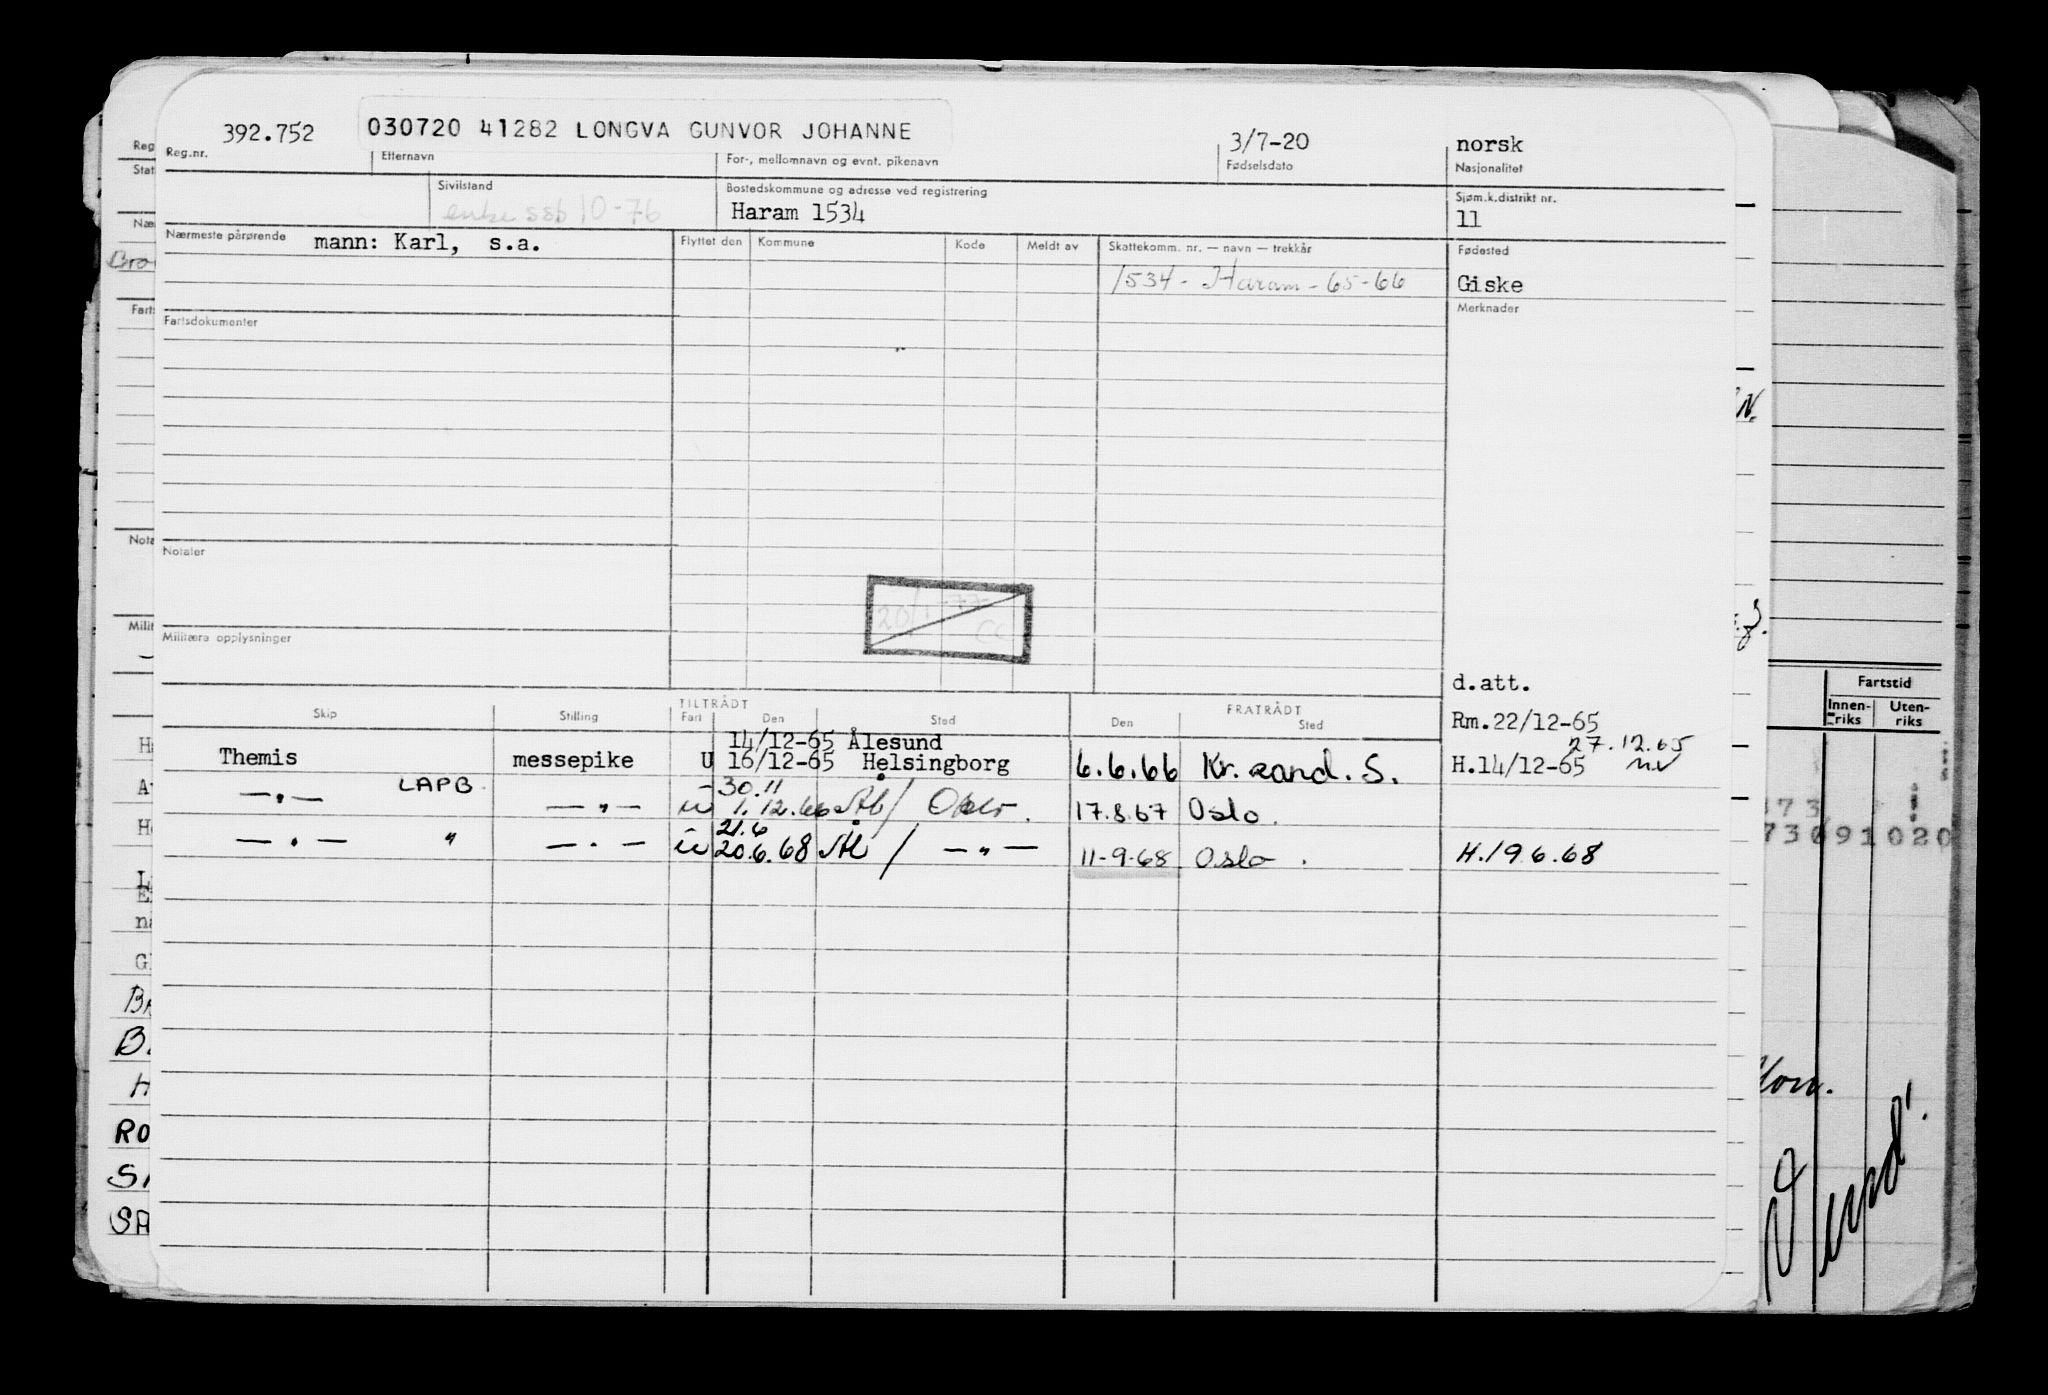 392.752 030720 41282 LONGVA GUNVOR JOHANNE 3/7-20 norsk
Reg.nr. Etternavn For-, mellomnavn og evnt. pikenavn Fødselsdato Nasjonalitet
Sivilstand Bostedskommune og adresse ved registrering Sjøm.k.distrikt nr.
enke ssb 10-76 Haram 1534 11
Nærmeste pårørende mann: Karl, s.a. Flyttet den Kommune Kode Meldt av Skattekomm. nr. — navn — trekkår Fødested
1534 - Haram - 65-66 Giske
Fartsdokumenter Merknader
Notater
20/1-77
CC
Militære opplysninger
d.att.
Skip Stilling TILTRÅDT Fart Den Sted FRATRÅDT Den Sted Rm.22/12-65
14/12-65 Ålesund 27.12.65
Themis messepike U 16/12-65 Helsingborg 6.6.66 Kr.sand. S. H.14/12-65
30.11
—„— LAPB —„— u 1.12.66 Ål/ 17.8.67 Oslo.
21.6
—„— " —„— u 20.6.68 Ål / —„— 11-9-68 Oslo. H.19.6.68
Reg
Stat
Næ
Bro
Farts
Nota
Milit
H
A
H
L
E
na
G
BA
B
H
RO
SA
SA
N.
Fartstid
Innen-riks Uten-riks
173
73 091 020